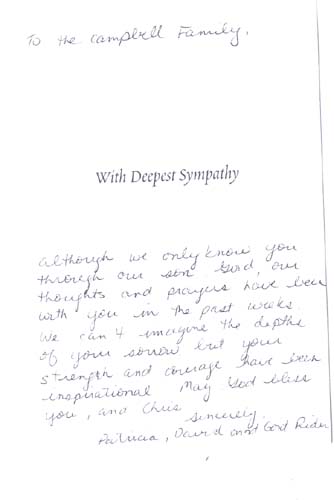 To the Campbell Family,
With Deepest Sympathy
although we only know you
through our son Gord, our
thoughts and prayers have been
with you in the past weeks
We can't imagine the depths
of your sorrow but your
strength and courage have been
inspirational May God bless
you, and Chris
Sincerely
Patricia, David and Gord Rider